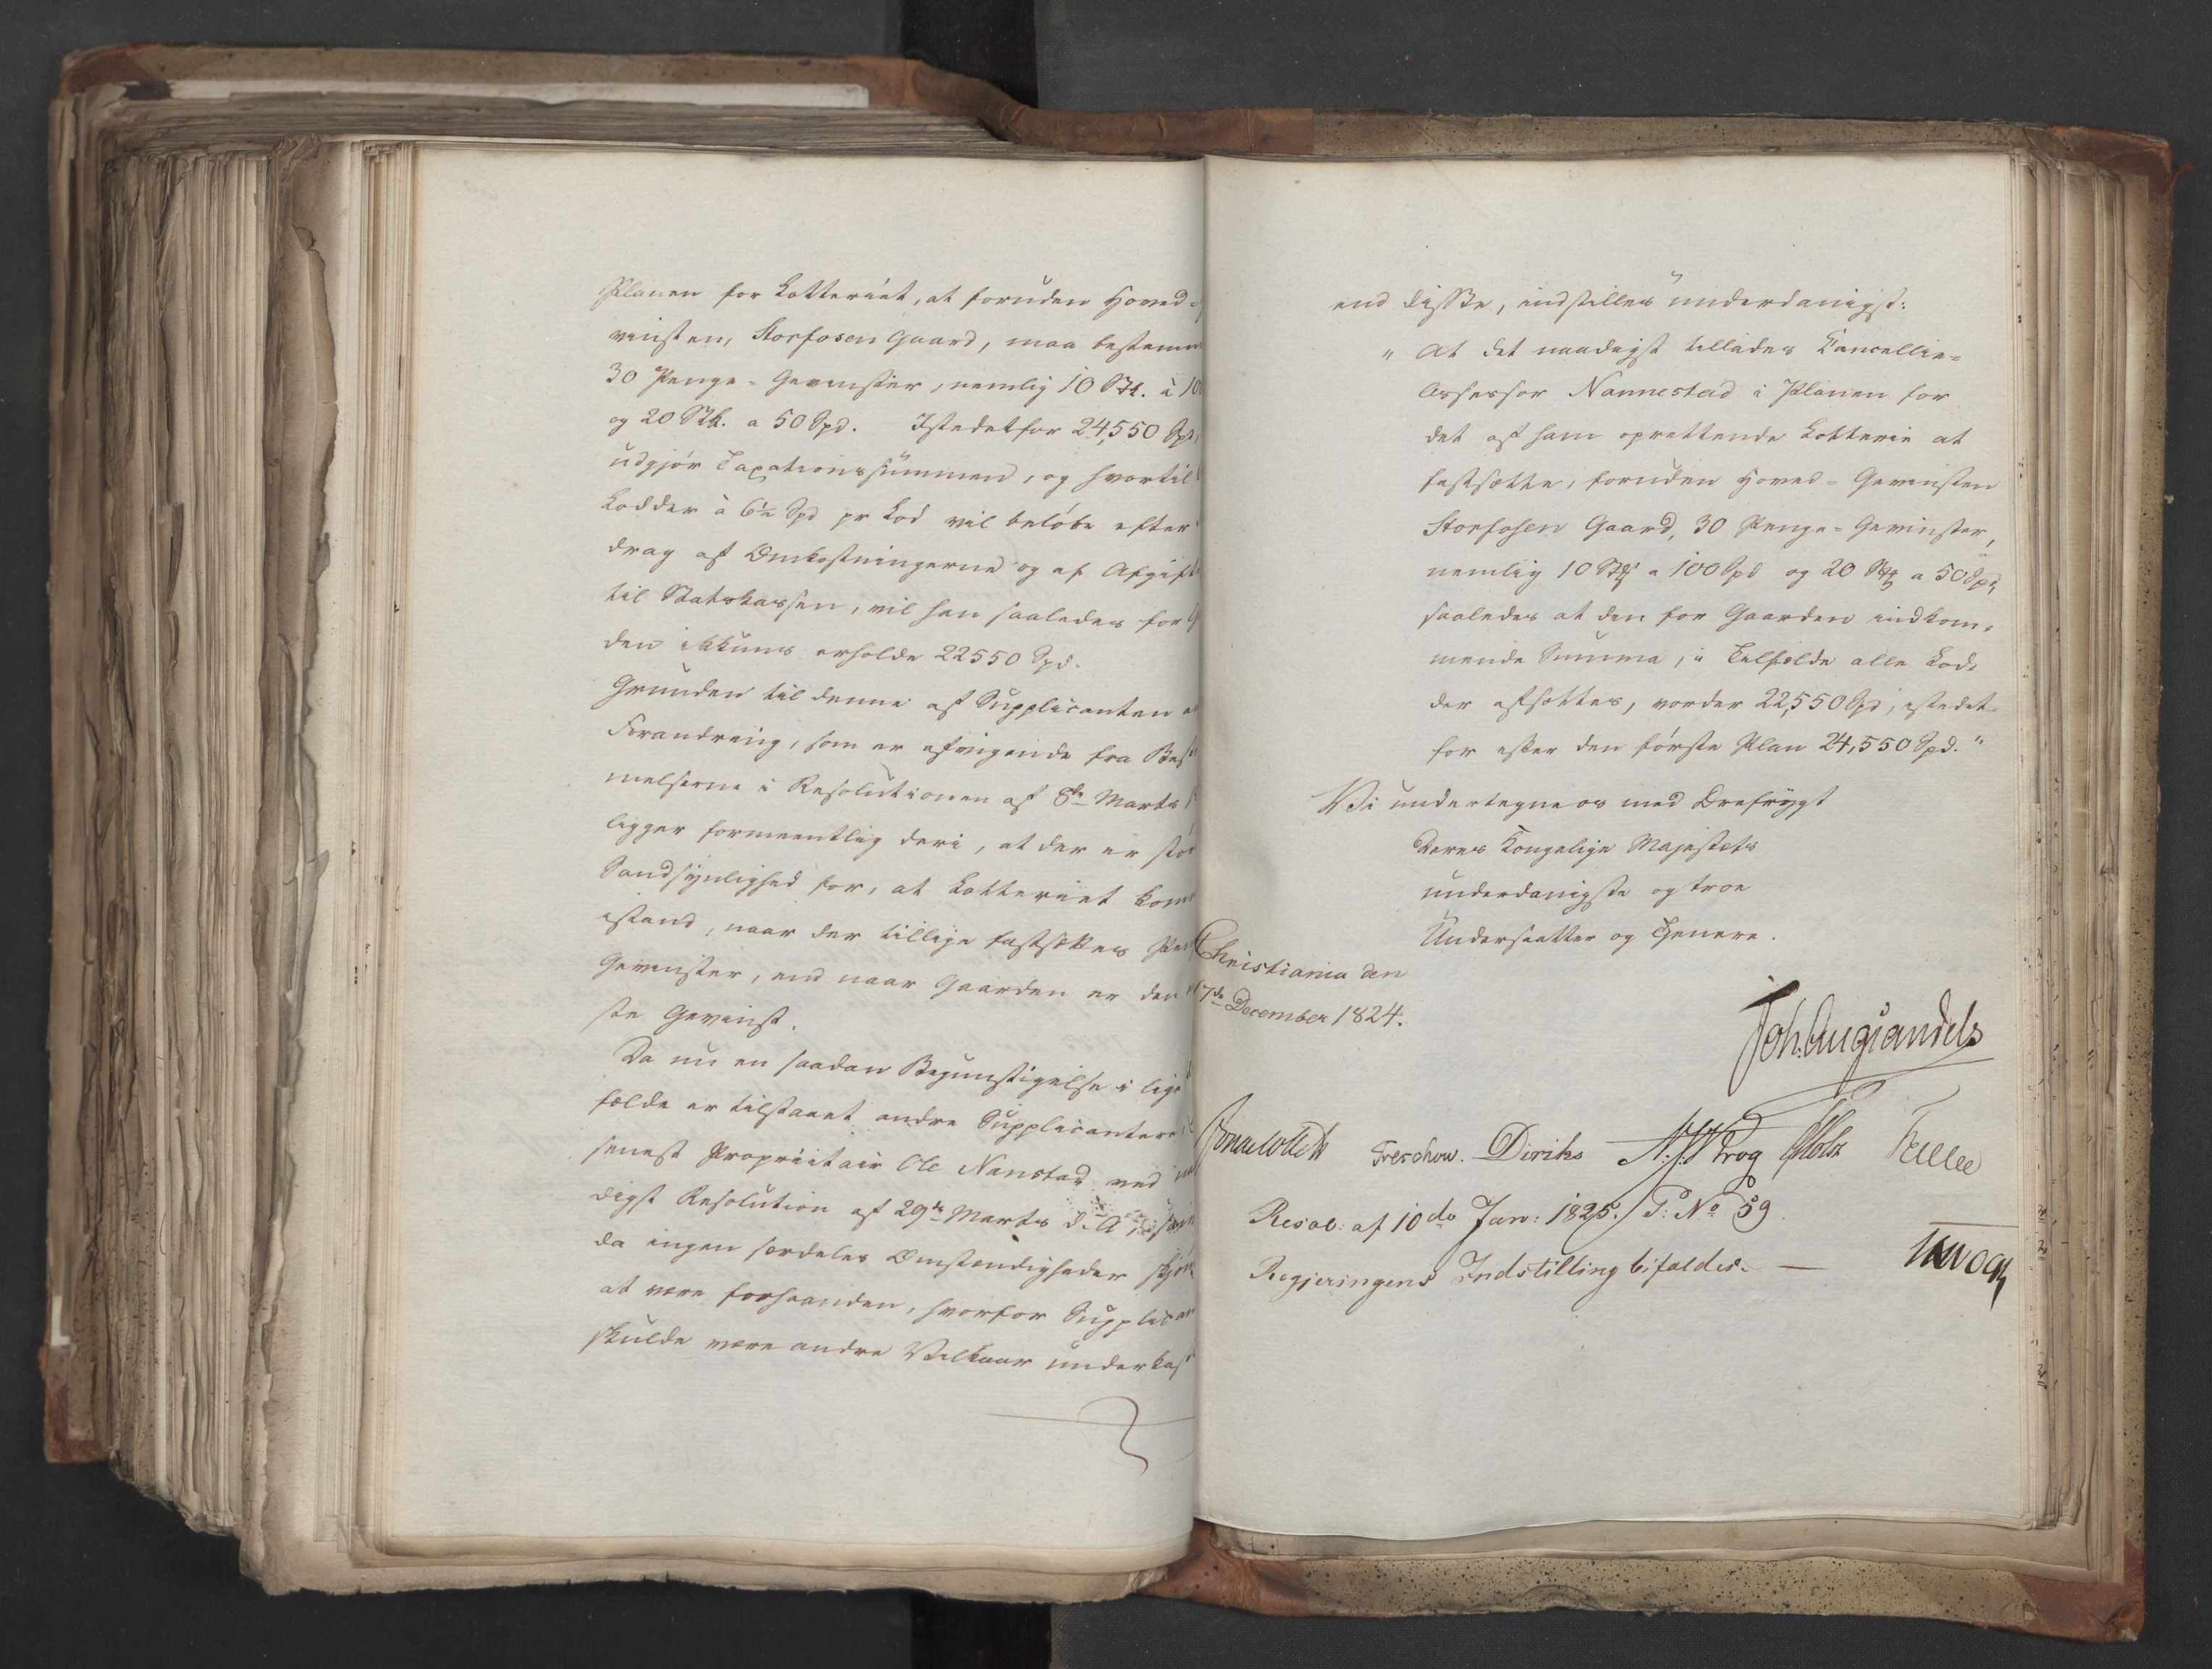 Planen for Lotteriet, at foruden Hoved-
vinsten, Storfosen Gaard, maa bestemm
30 Penge-Gevinster, nemlig 10 Stk. à 10
og 20 Stk. a 50 Spd. Istedetfor 24,550 Spd,
udgjør Taxationssummen, og hvortil
Lodder à 6½ Spd pr Lod vil beløbe efter
drag af Omkostningerne og af Afgift
til Statskassen, vil han saaledes for G
den ikkuns erholde 22550 Spd.
Grunden til denne af Supplicanten a
Forandring, som er afvigende fra Bes
melserne i Resolutionen af 8de Marts
ligger formeentlig deri, at der er stør
Sandsynlighed for, at Lotteriet kom
istand, naar der tillige fastsættes Pen
Gevinster, end naar Gaarden er den
ste Gevinst.
Da nu en saadan Begunstigelse i lige
fælde er tilstaaet andre Supplicantere
senest Proprietair Ole Nanstad ved na
digst Resolution af 29de Marts d. A.
da ingen særdeles Omstændigheder skjøn
at være forhaanden, hvorfor Supplican
skulde være andre Vilkaar underkast
end disse, indstilles underdanigst:
" At det naadigst tillades Cancellie-
Assessor Nannestad i Planen for
det af ham oprettende Lotterie at
fastsætte, foruden Hoved-Gevinsten
Storfosen Gaard, 30 Penge-Gevinster,
nemlig 10 Stk a 100 Spd og 20 Stk a 50 Spd,
saaledes at den for Gaarden indkom-
mende Summa, i Tilfælde alle Lod-
der afsættes, vorder 22,550 Spd, istedet-
for efter den første Plan 24,550 Spd. "
Vi undertegne os med Ærefrygt
Deres Kongelige Majestæts
underdanigste og troe
Undersaatter og Tjenere.
Christiania den
7de December 1824.
Joh: Aug: Sandels
Jonas Collett Treschow. Diriks A. J. Krog Holst Fasting
Resol: af 10de Jan: 1825. P: No 59.
Regjeringens Indstilling bifaldes. —